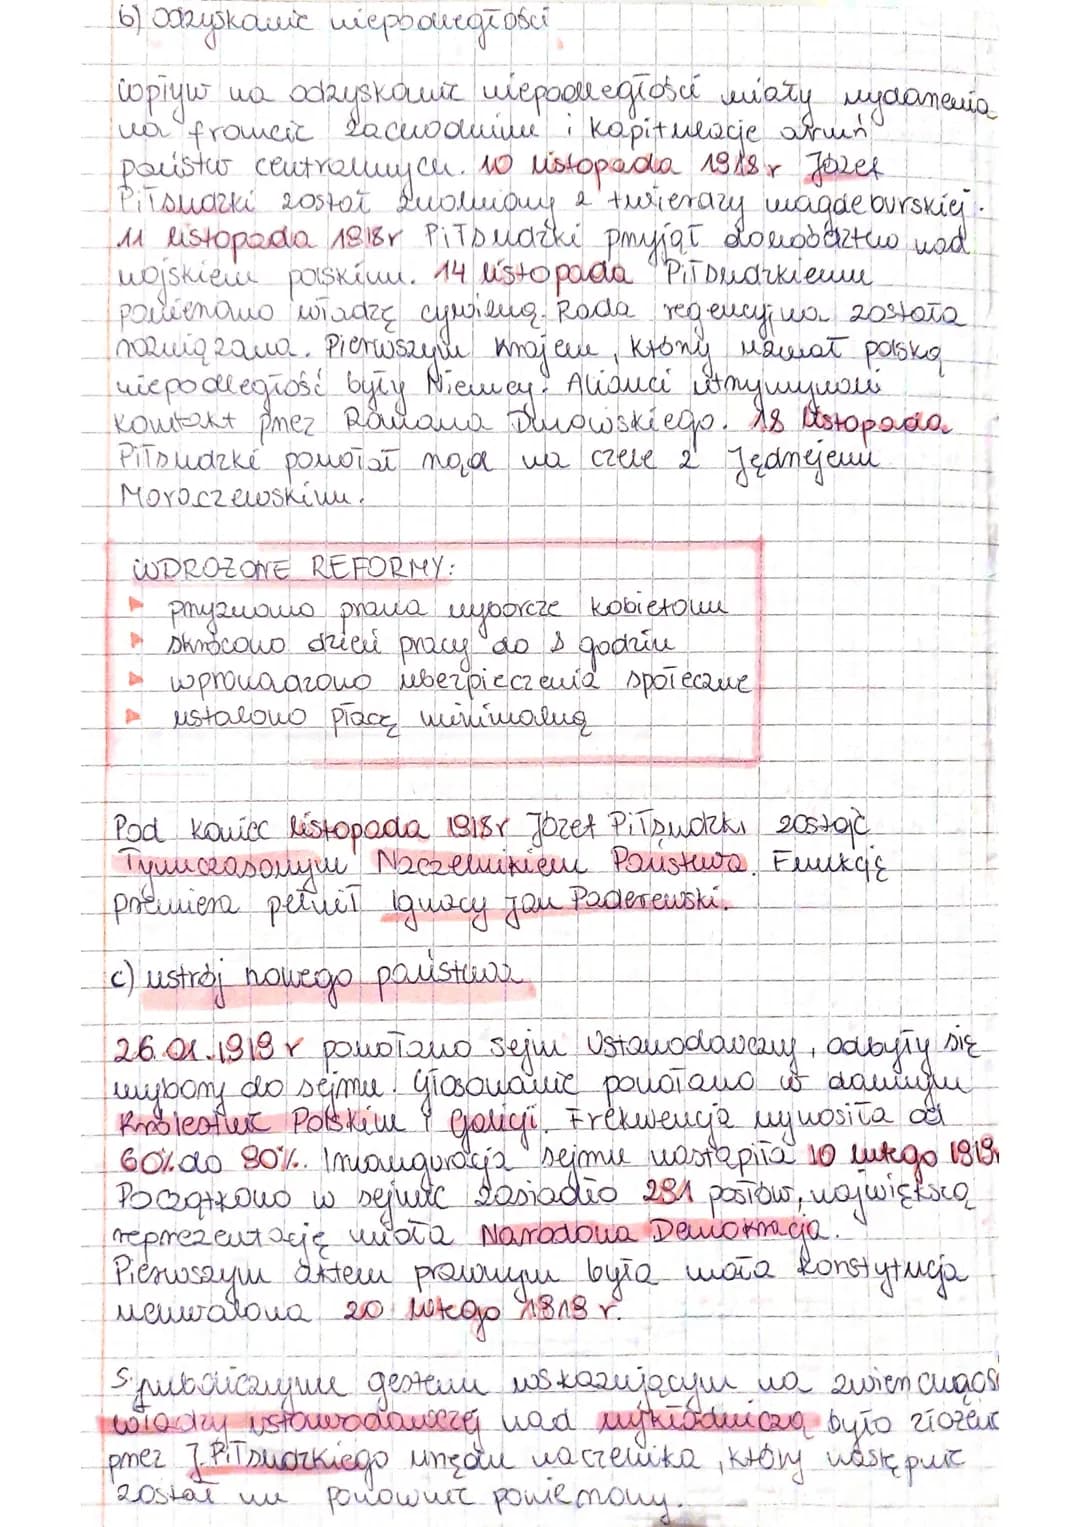 b) odzyskanie niepodległości
wpływ na odzyskanie niepodległości miały wydarzenia
na froncie zachodnim i kapitulacje armii
państw centralnych. 10 listopada 1918 r Józef
Piłsudzki został zwolniony z twierdzy magdeburskiej.
11 listopada 1918r Piłsudzki przyjął dowództwo nad
wojskiem polskim. 14 listopada Piłsudzkiemu
powierzono władzę cywilną. Rada regencyjna została
rozwiązana. Pierwszym krajem, który uznał polską
niepodległość były Niemcy. Alianci utrzymywali
kontakt przez Romana Dmowskiego. 18 listopada
Piłsudzki powołał rząd na czele z Jędrzejem
Moraczewskim.
WDROŻONE REFORMY:
przyznano prawa wyborcze kobietom
skrócono dzień pracy do 8 godzin
wprowadzono ubezpieczenia społeczne
ustalono płacę minimalną
Pod koniec listopada 1918r Józef Piłsudzki został
Tymczasowym Naczelnikiem Państwa. Funkcję
premiera pełnił Ignacy Jan Paderewski.
c) ustrój nowego państwa
26.01.1919 r powołano sejm Ustawodawczy, odbyły się
wybory do sejmu. Głosowanie powołano w dawnym
Królestwie Polskim i Galicji. Frekwencja wynosiła od
60% do 90%. Inauguracja sejmu nastąpiła 10 lutego 1919r
Początkowo w sejmie zasiadło 291 posłów, największą
reprezentację miała Narodowa Demokracja.
Pierwszym aktem prawnym była mała Konstytucja
uchwalona 20 lutego 1919 r.
Symbolicznym gestem wskazującym na
władzy ustawodawczej nad wykładniczą było złożenie
przez J. Piłsudzkiego urzędu naczelnika, który następnie
został mu ponownie powierzony.